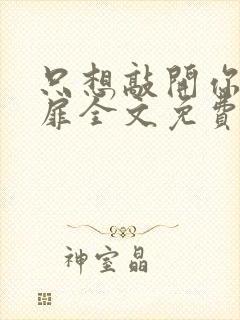 只想敲開你
扉全文免費
神室晶